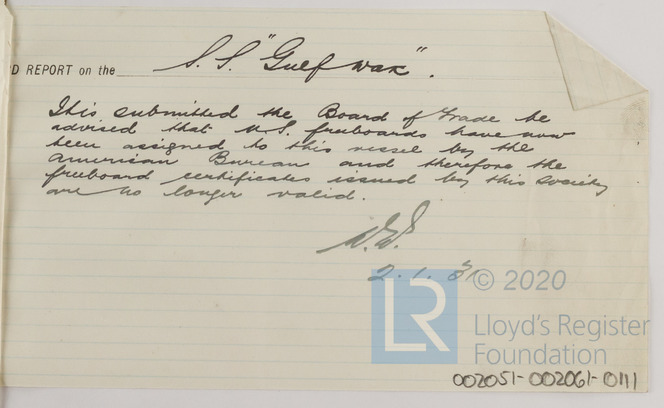 D REPORT on the S.S. "Gulfwax".
It is submitted the Board of Trade be
advised that U.S. freeboards have now
been assigned to this vessel by the
American Bureau and therefore the
freeboard certificates issued by this Society
are no longer valid.
2.1.31
LR
© 2020
Lloyd's Register
Foundation
002051-002061-0111